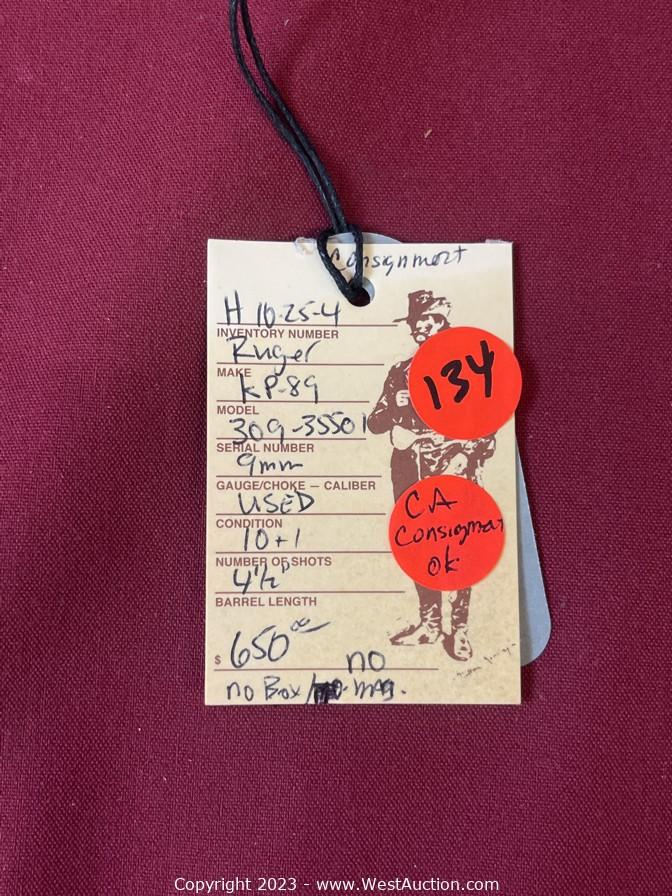 Consignment
H 10-25-4
INVENTORY NUMBER
Ruger
MAKE
KP-89
MODEL
309-35501
SERIAL NUMBER
9mm
GAUGE/CHOKE — CALIBER
USED
CONDITION
10+1
NUMBER OF SHOTS
4½"
BARREL LENGTH
$ 650 00
no
no Box / mag.
134
CA
Consignment
ok
Copyright 2023 - www.WestAuction.com